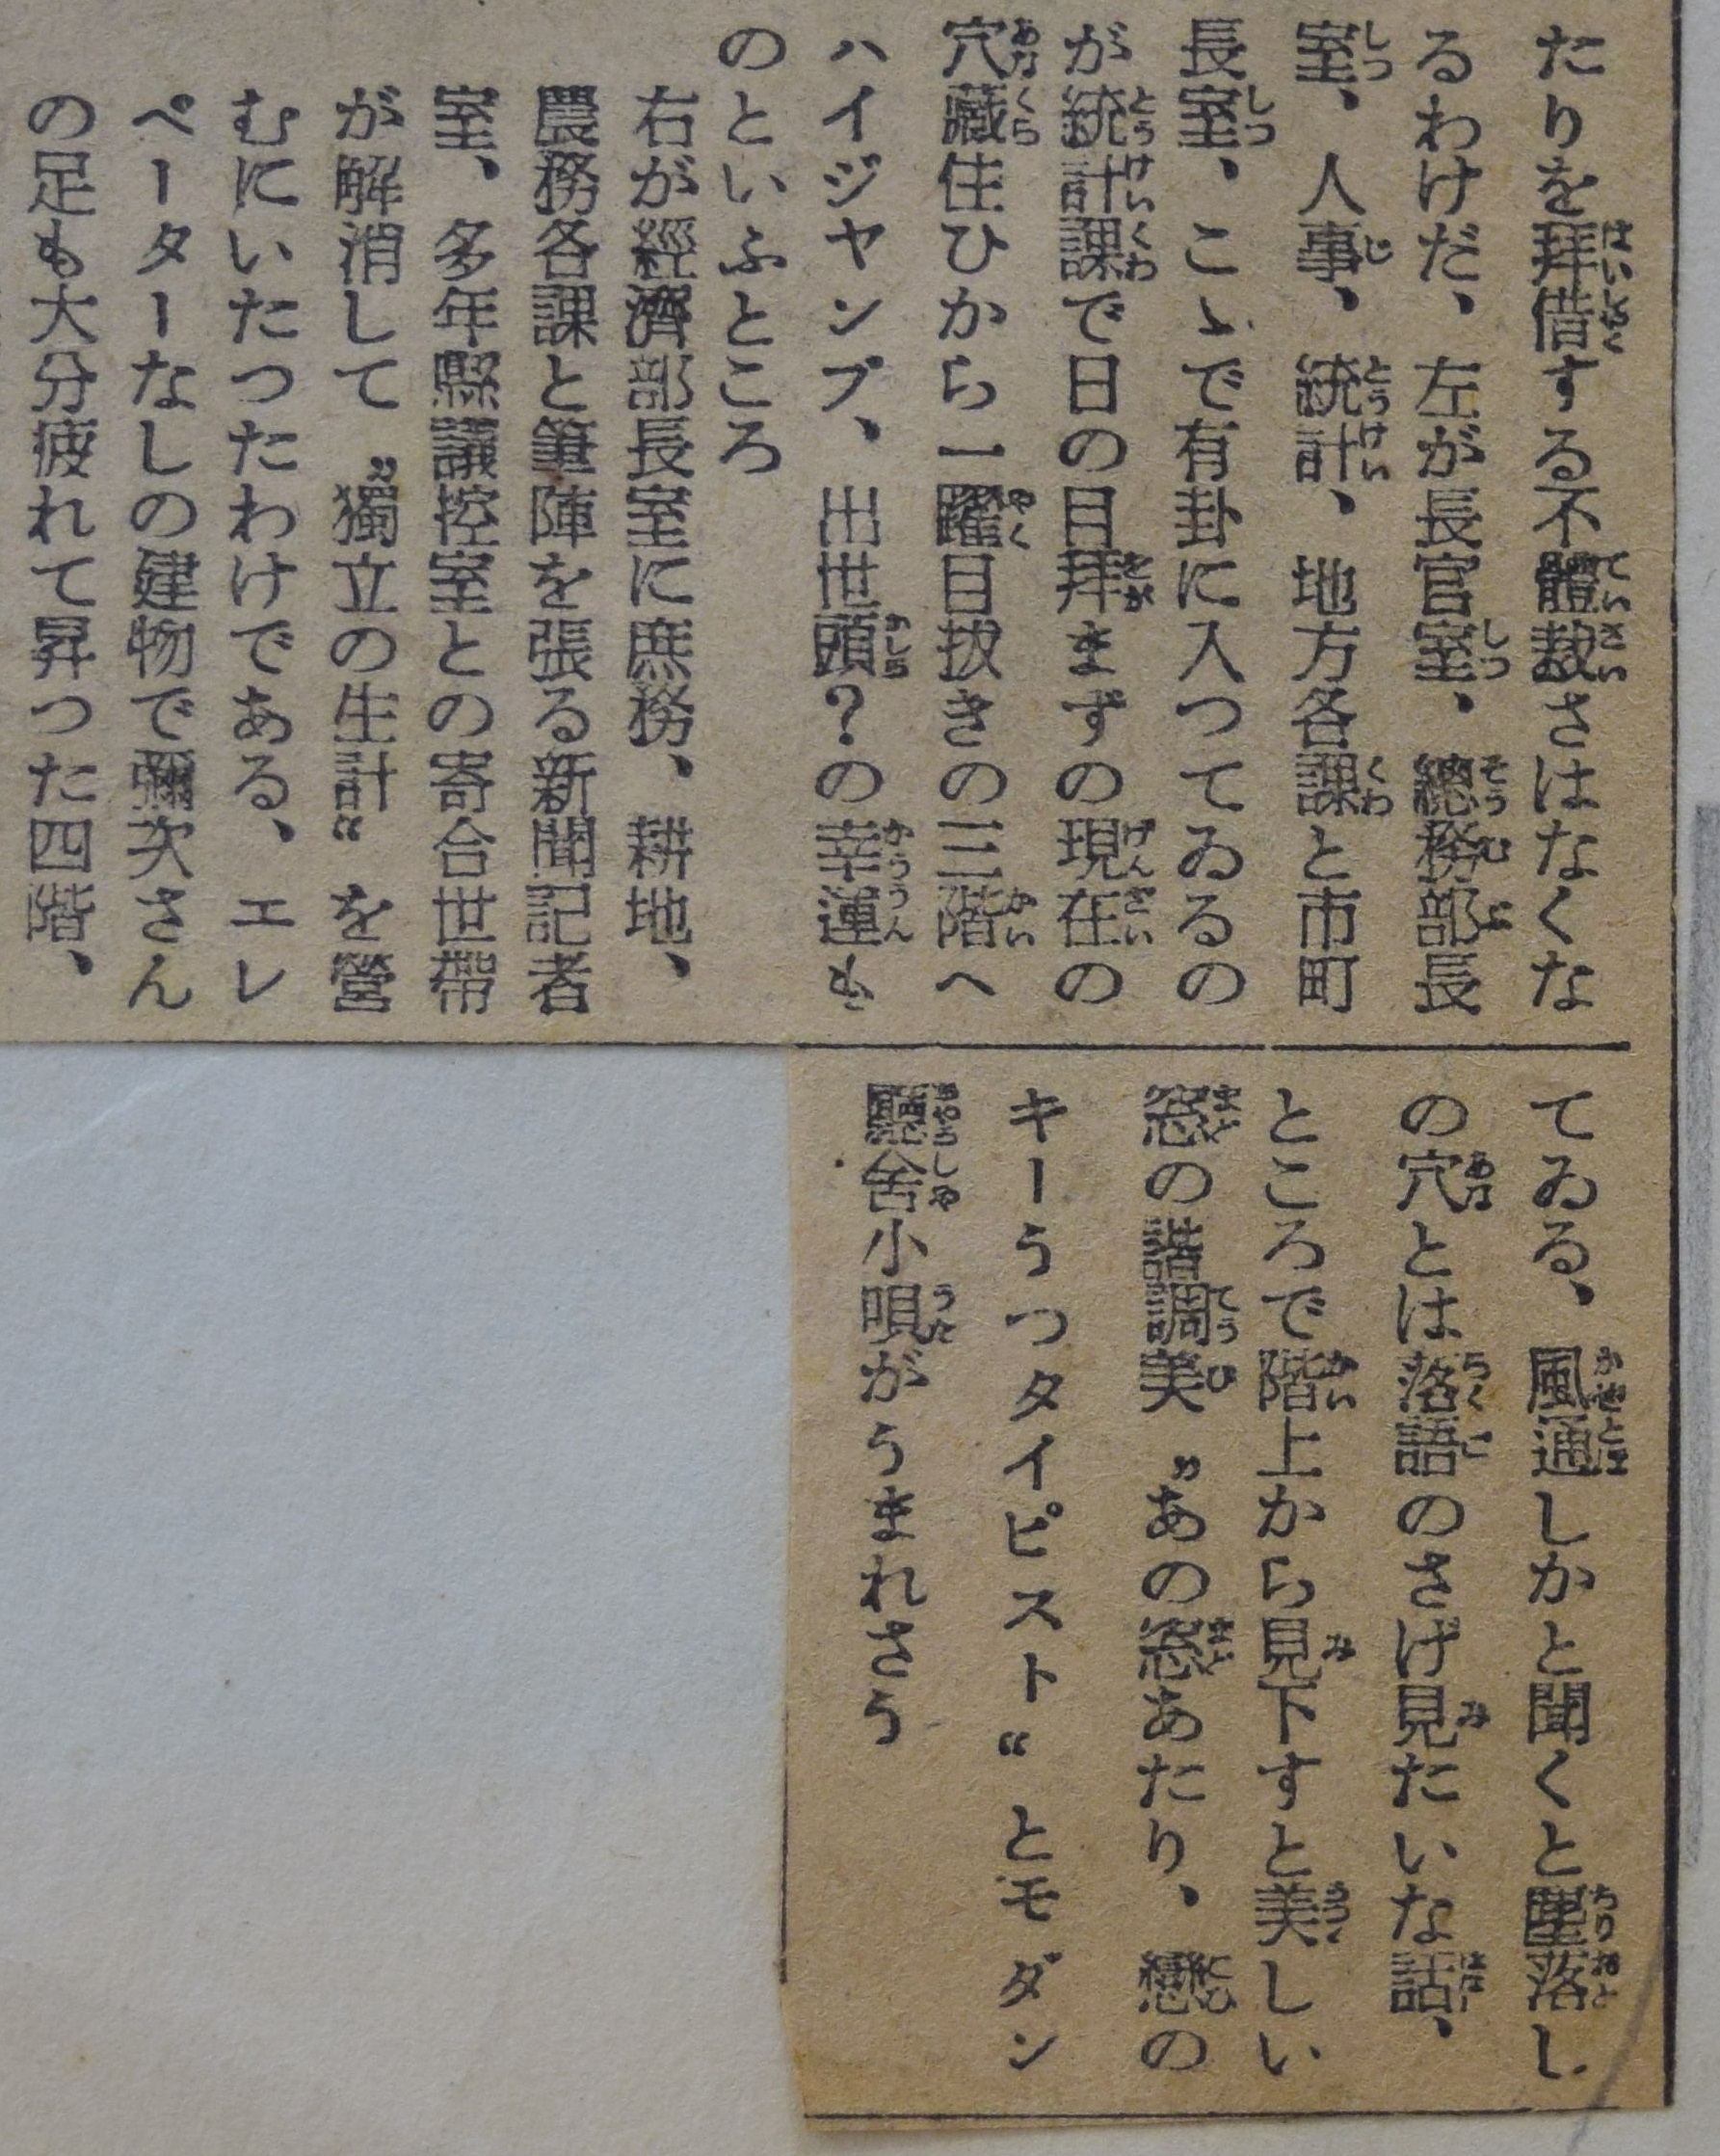 たりを拜借する不體裁さはなくな
るわけだ、左が長官室、總務部長
室、人事、統計、地方各課と市町
長室、こゝで有卦に入つてゐるの
が統計課で日の目拜まずの現在の
穴藏住ひから一躍目拔きの三階へ
ハイジヤンプ、出世頭?の幸運も
のといふところ
右が經濟部長室に庶務、耕地、
農務各課と筆陣を張る新聞記者
室、多年縣議控室との寄合世帶
が解消して〝獨立の生計〟を營
むにいたつたわけである、エレ
ベーターなしの建物で彌次さん
の足も大分疲れて昇つた四階、
てゐる、風通しかと聞くと塵落し
の穴とは落語のさげ見たいな話、
ところで階上から見下すと美しい
窓の諧調美〝あの窓あたり、戀の
キーうつタイピスト〟とモダン
縣舍小唄がうまれさう